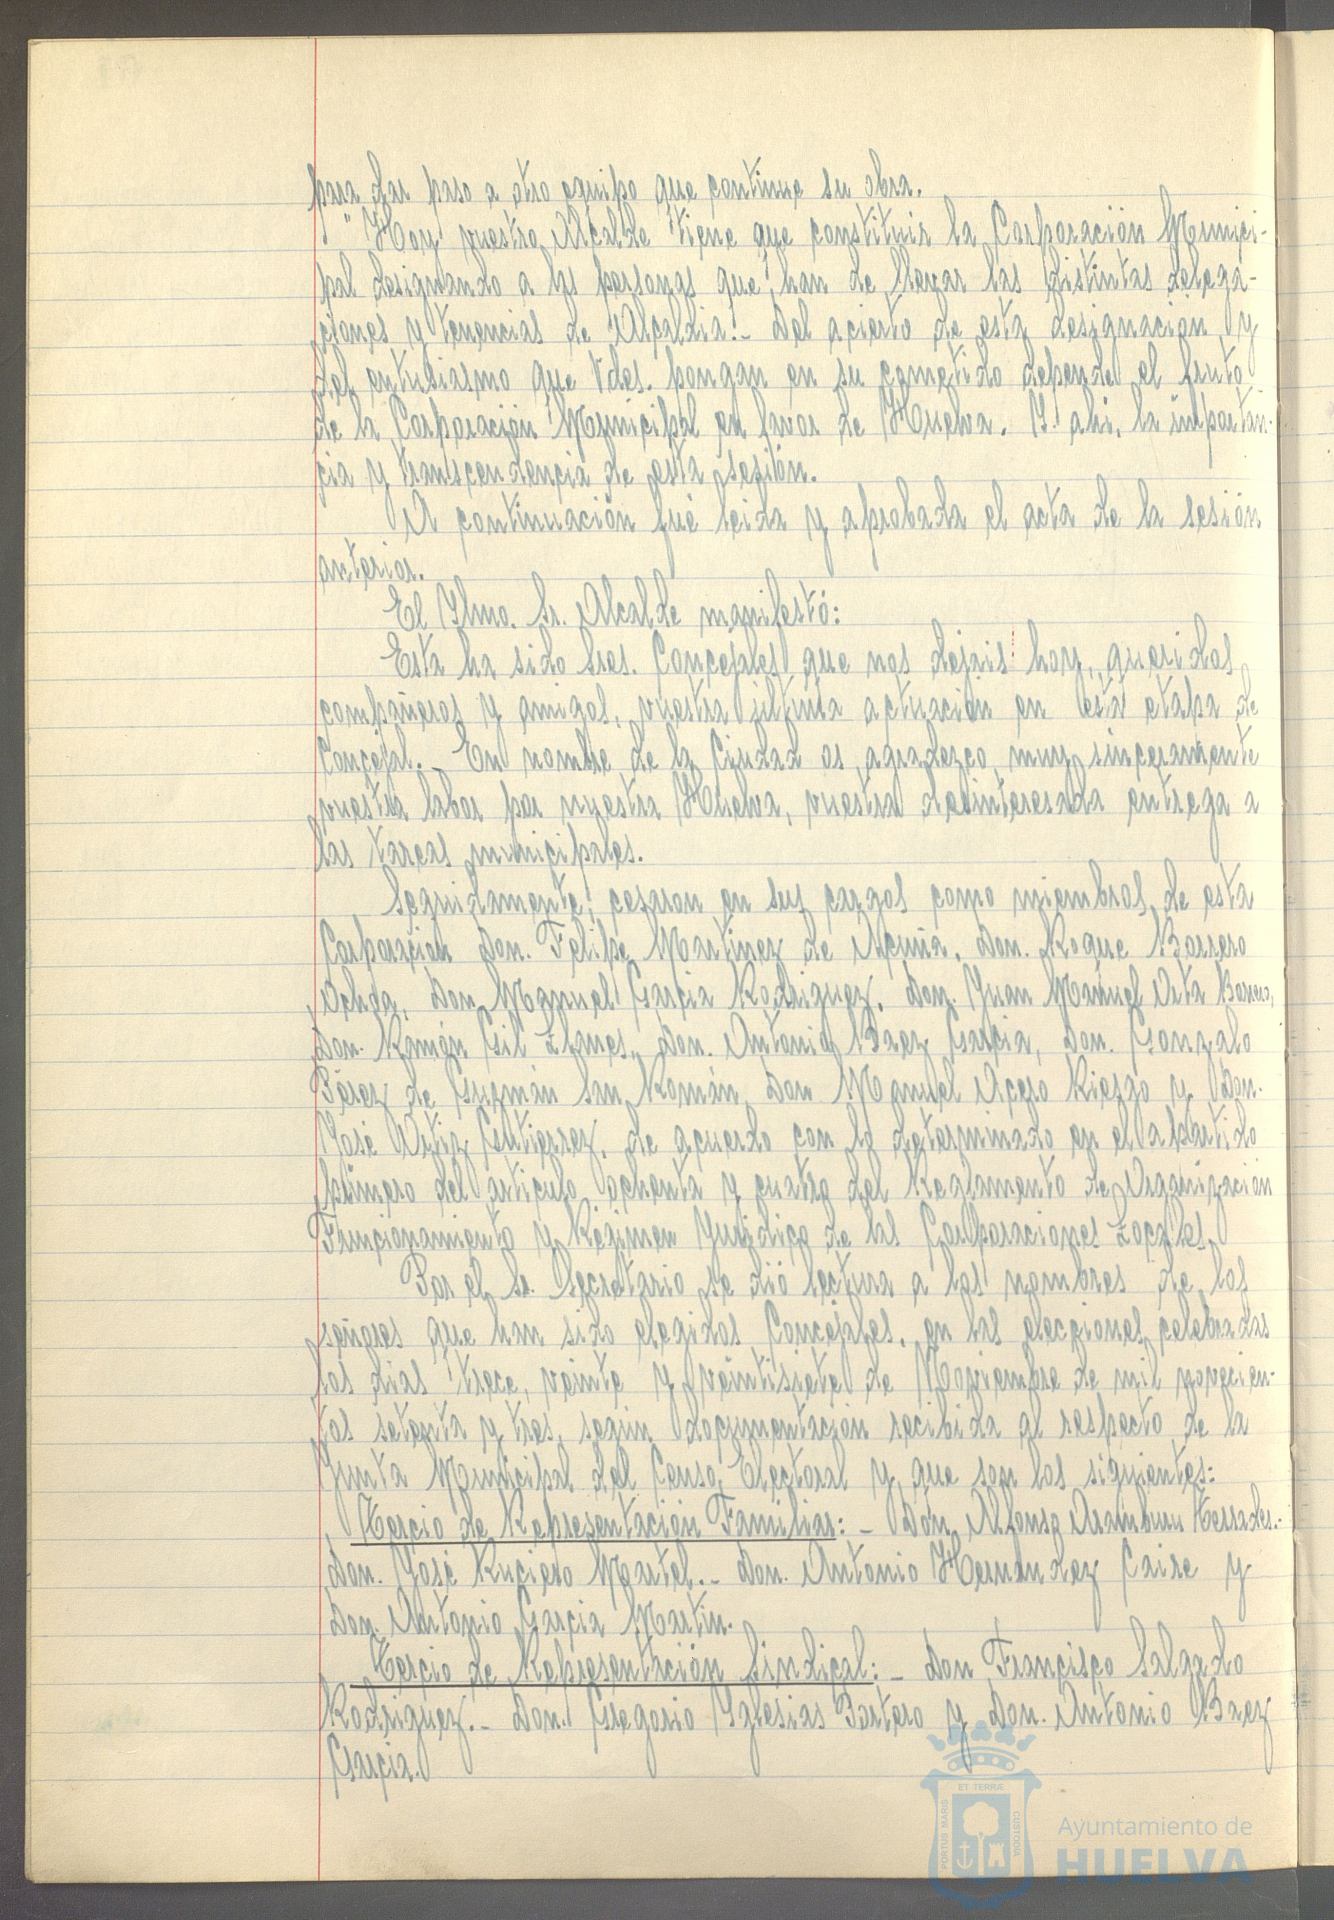 para dar paso a otro equipo que continue su obra.
" Hoy vuestro Alcalde tiene que constituir la Corporación Munici-
pal designando a las personas que han de llevar las distintas delega-
ciones y tenencias de Alcaldia.- Del acierto de esta designación y
del entusiasmo que Vdes. pongan en su cometido depende el fruto
de la Corporación Municipal en favor de Huelva. Y ahi, la importan-
cia y transcendencia de esta sesión.
A continuación fué leida y aprobada el acta de la sesión
anterior.
El Ylmo. Sr. Alcalde manifestó:
Esta ha sido Sres. Concejales que nos dejais hoy, queridos
compañeros y amigos, vuestra última actuación en esta etapa de
Concejal.- En nombre de la Ciudad os agradezco muy sinceramente
vuestra labor por nuestra Huelva, vuestra desinteresada entrega a
las tareas municipales.
Seguidamente, cesaron en sus cargos como miembros de esta
Corporación Don. Felipe Martinez de Acuña, Don. Roque Barrero
Ochoa, Don Manuel Garcia Rodriguez, Don. Juan Manuel Orta
Don. Ramón Gil Llanes, Don. Antonio Baez Garcia, Don. Gonzalo
Pérez de Guzmán San Román, Don Manuel Acero Riesgo y Don.
José Ortiz Gutierrez, de acuerdo con lo determinado en el apartado
primero del articulo ochenta y cuatro del Reglamento de Organización
Funcionamiento y Régimen Juridico de las Corporaciones Locales.
Por el Sr. Secretario se dió lectura a los nombres de los
señores que han sido elegidos Concejales, en las elecciones celebradas
los dias trece, veinte y veintisiete de Noviembre de mil novecien-
tos setenta y tres, según documentación recibida al respecto de la
Junta Municipal del Censo Electoral y que son los siguientes:
Tercio de Representación Familiar: - Don Alfonso Aramburu Terrades.-
Don. José Ruciero Martel.- Don. Antonio Hernandez Caire y
Don. Antonio Garcia Martin.
Tercio de Representación Sindical: - Don Francisco Salgado
Rodriguez.- Don. Gregorio Yglesias Portero y Don. Antonio Baez
Garcia.
ET TERRÆ
PORTUS MARIS
CUSTODIA
Ayuntamiento de
HUELVA